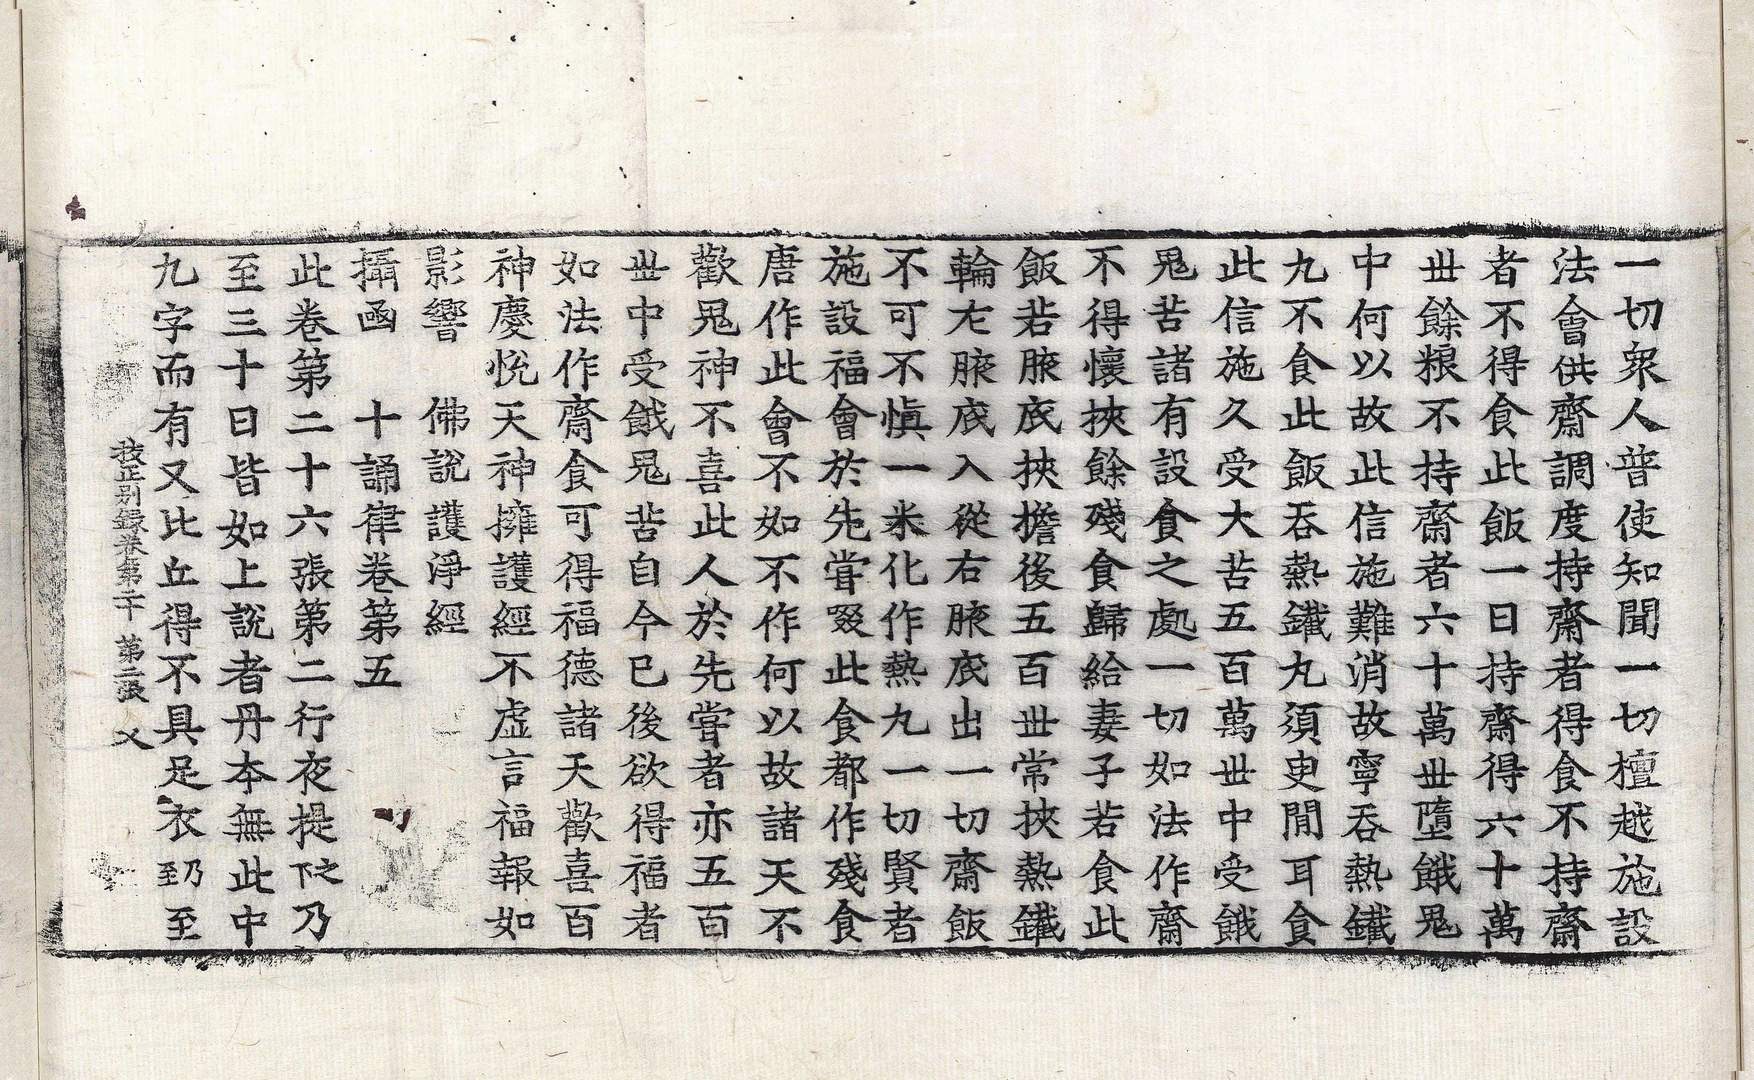 一切衆人普使知聞一切檀越施設
法會供齋調度持齋者得食不持齋
者不得食此飯一日持齋得六十萬
丗餘粮不持齋者六十萬丗墮餓鬼
中何以故此信施難消故寧吞熱鐵
九不食此飯吞熱鐵丸須臾閒耳食
此信施久受大苦五百萬丗中受餓
鬼苦諸有設食之處一切如法作齋
不得懷挾餘殘食歸給妻子若食此
飯若腋底挾擔後五百丗常挾熱鐵
輪左腋底入從右腋底出一切齋飯
不可不慎一米化作熱九一切賢者
施設福會於先甞啜此食都作殘食
唐作此會不如不作何以故諸天不
歡鬼神不喜此人於先甞者亦五百
丗中受餓鬼苦自今已後欲得福者
如法作齋食可得福德諸天歡喜百
神慶悅天神擁護經不虛言福報如
影響　佛說護淨經
攝函　十誦律卷第五
此卷第二十六張第二行夜提下之乃
至三十日皆如上說者丹本無此中
九字而有又比丘得不具足衣乃至至
挍正别録卷第二十　第二張　乂